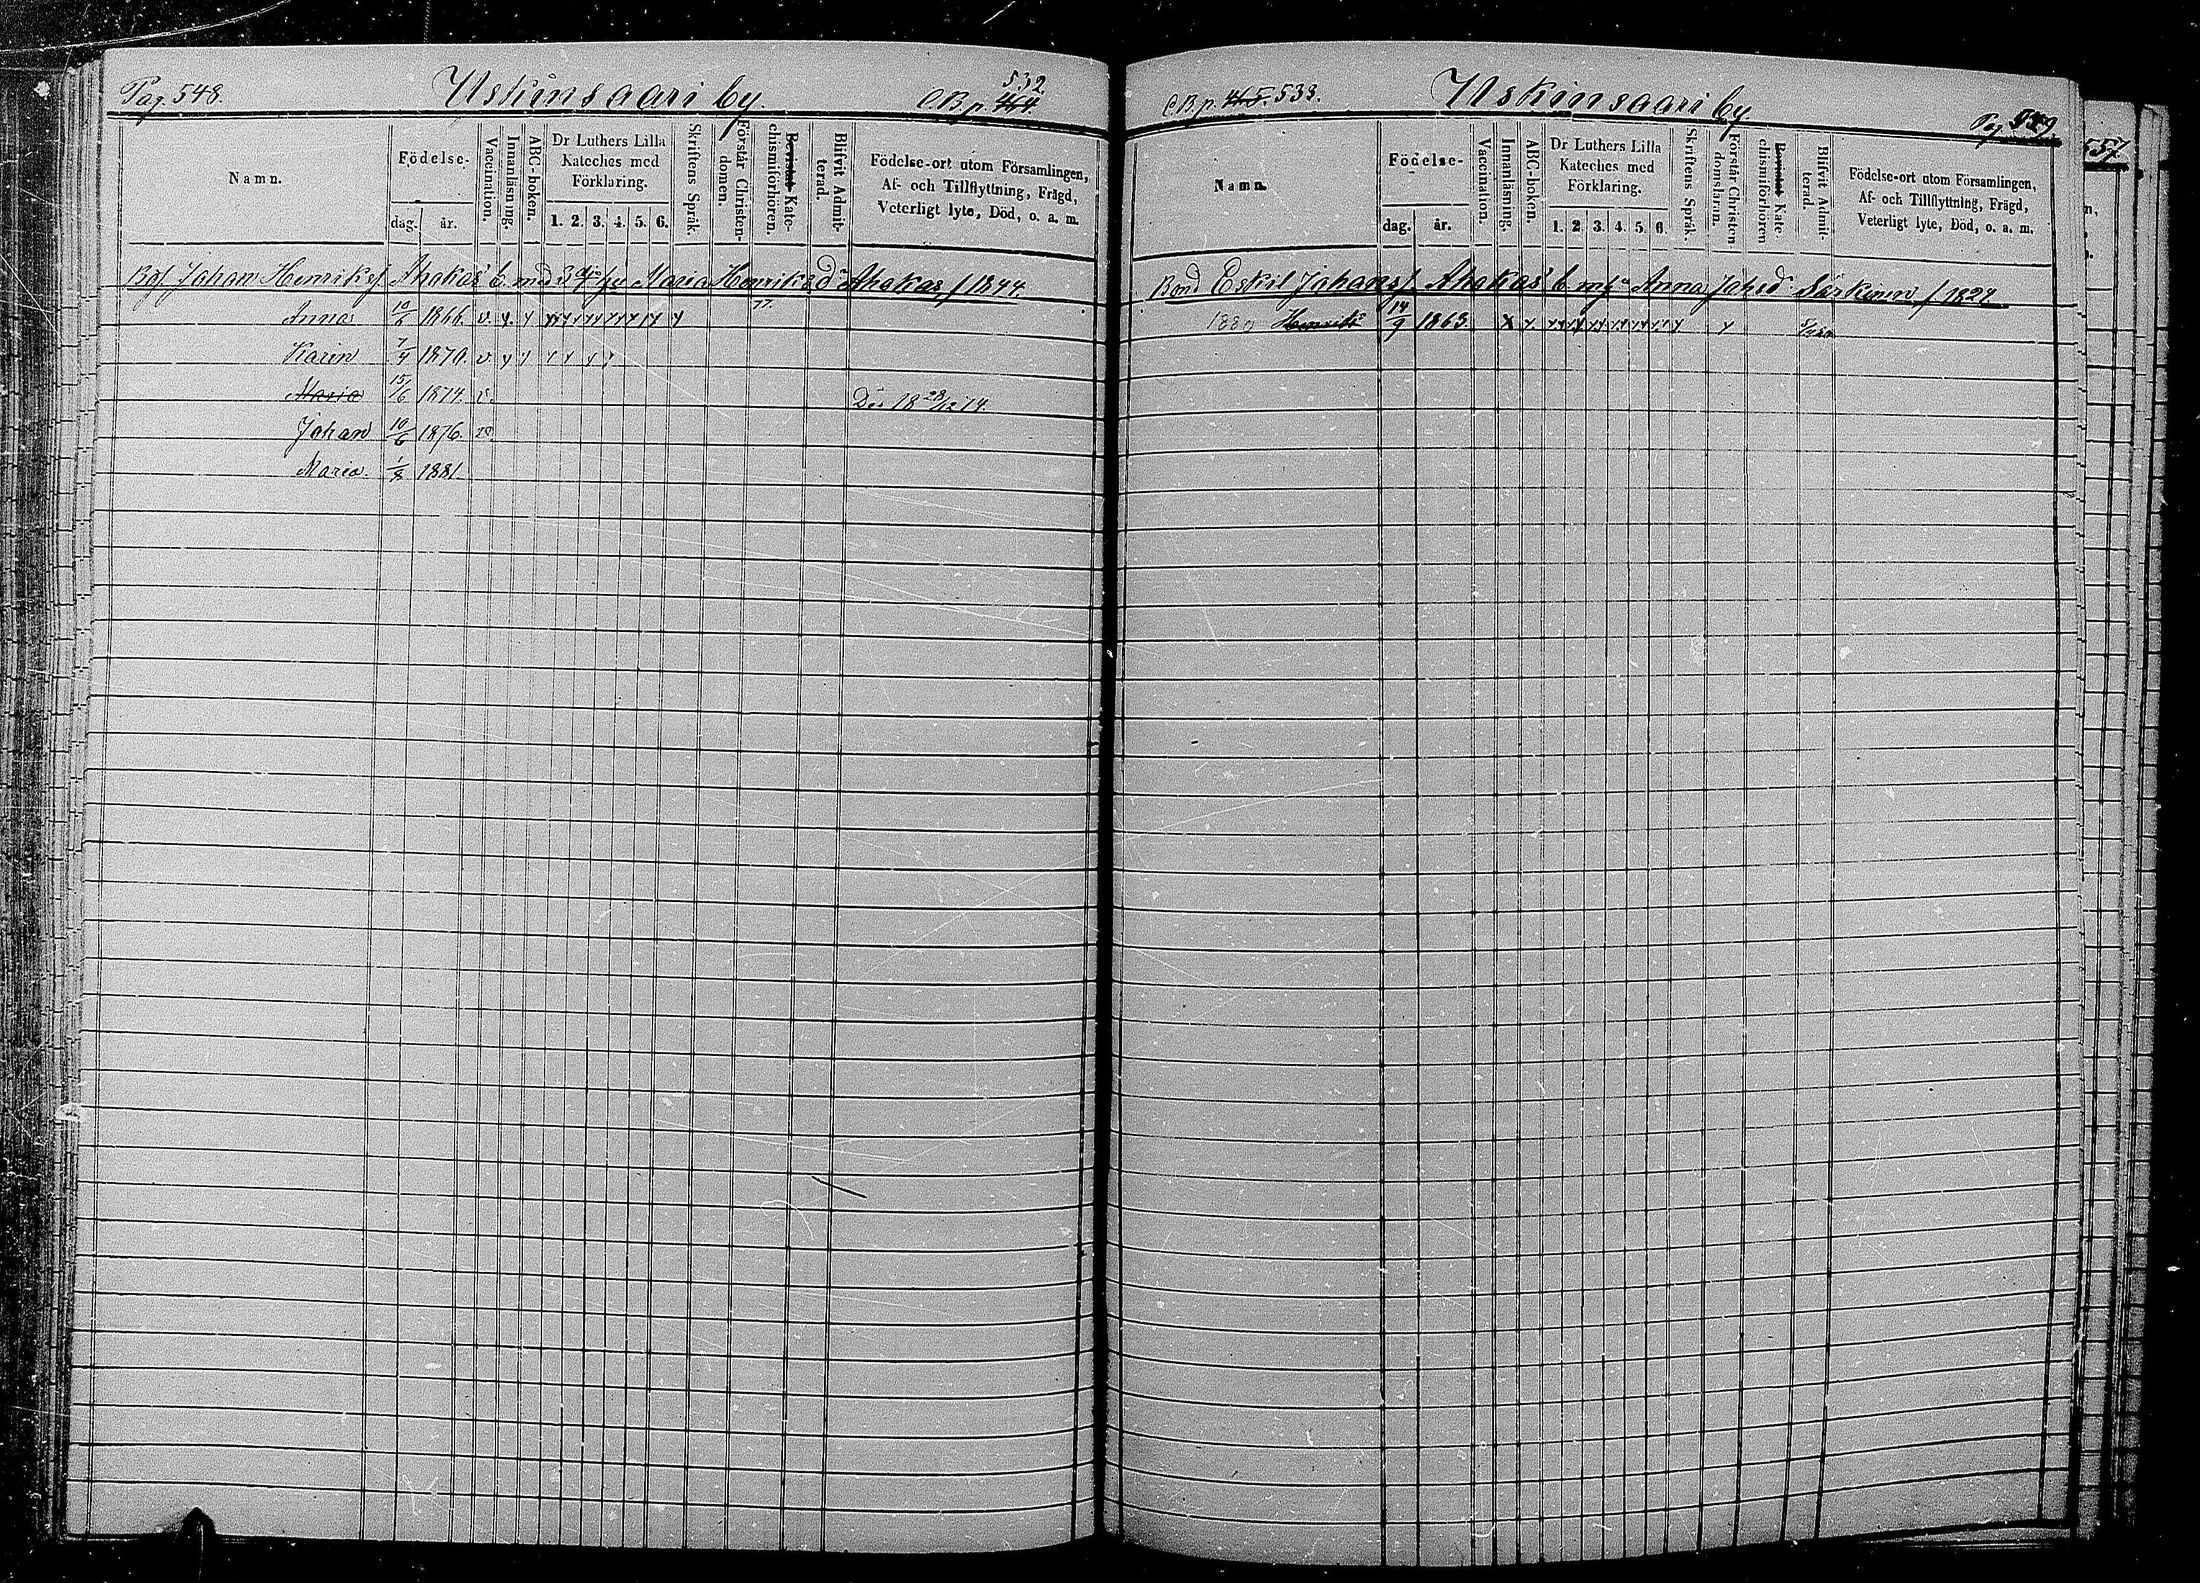 Pag. 548. Uskinsaari by. 532.
C.B.p. 464.
Namn.
Födelse-
dag. år.
Vaccination.
Innanläsning.
ABC-boken.
Dr Luthers Lilla
Kateches med
Förklaring.
1. 2. 3. 4. 5. 6.
Skriftens Språk.
Förstår Christen-
domen.
Bevistat Kate-
chismiförhören.
Blifvit Admit-
terad.
Födelse-ort utom Församlingen,
Af- och Tillflyttning, Frägd,
Veterligt lyte, Död, o. a. m.
Johan Henrikss Ahakas b. med Maria Henriksd Ahakas f 1844.
Anna 10/6 1866. v. y. y
Karin 7/4 1870. v. y y
Maria 15/6 1874. v. Dör 18 23/12 74.
Johan 10/6 1876. v.
Maria. 1/8 1881.
C.B.p. 533. Uskinsaari by
Pag. 549
Namn.
Födelse-
dag. år.
Vaccination.
Innanläsning.
ABC-boken.
Dr Luthers Lilla
Kateches med
Förklaring.
1. 2. 3. 4. 5. 6.
Skriftens Språk.
Förstår Christen
domsläran.
Bevistat Kate-
chismiförhören
Blifvit Admit-
terad.
Födelse-ort utom Församlingen,
Af- och Tillflyttning, Frägd,
Veterligt lyte, Död, o. a. m.
Bond Eskil Johanss Ahakas b. Anna Johsd Särkinen f 1827
1880 Henrik 14/9 1863. x y. y y
557.